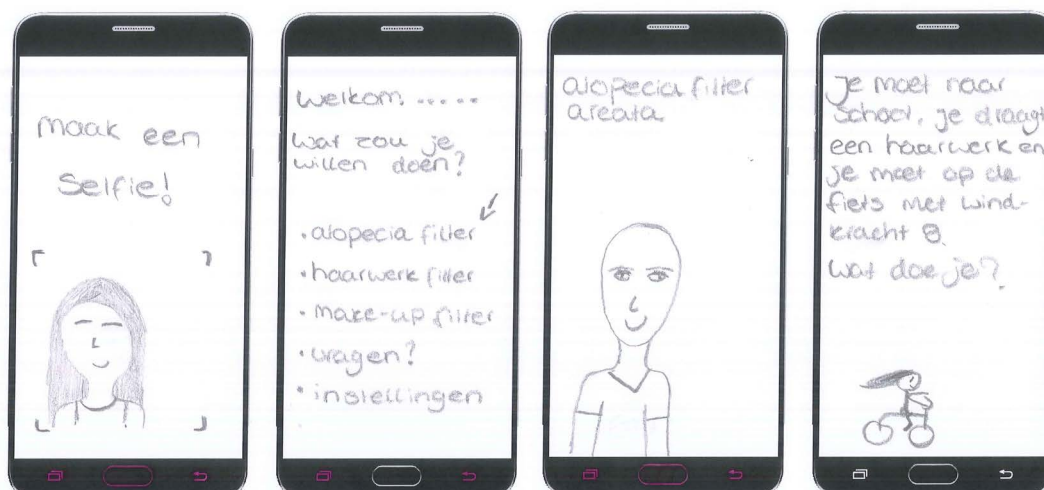 maak een
Selfie!
welkom .....
wat zou je
willen doen?
• alopecia filter
• haarwerk filter
• make-up filter
• vragen?
• instellingen
alopecia filter
areata.
Je moet naar
school, je draagt
een haarwerk en
je moet op de
fiets met wind-
kracht 8.
wat doe je?